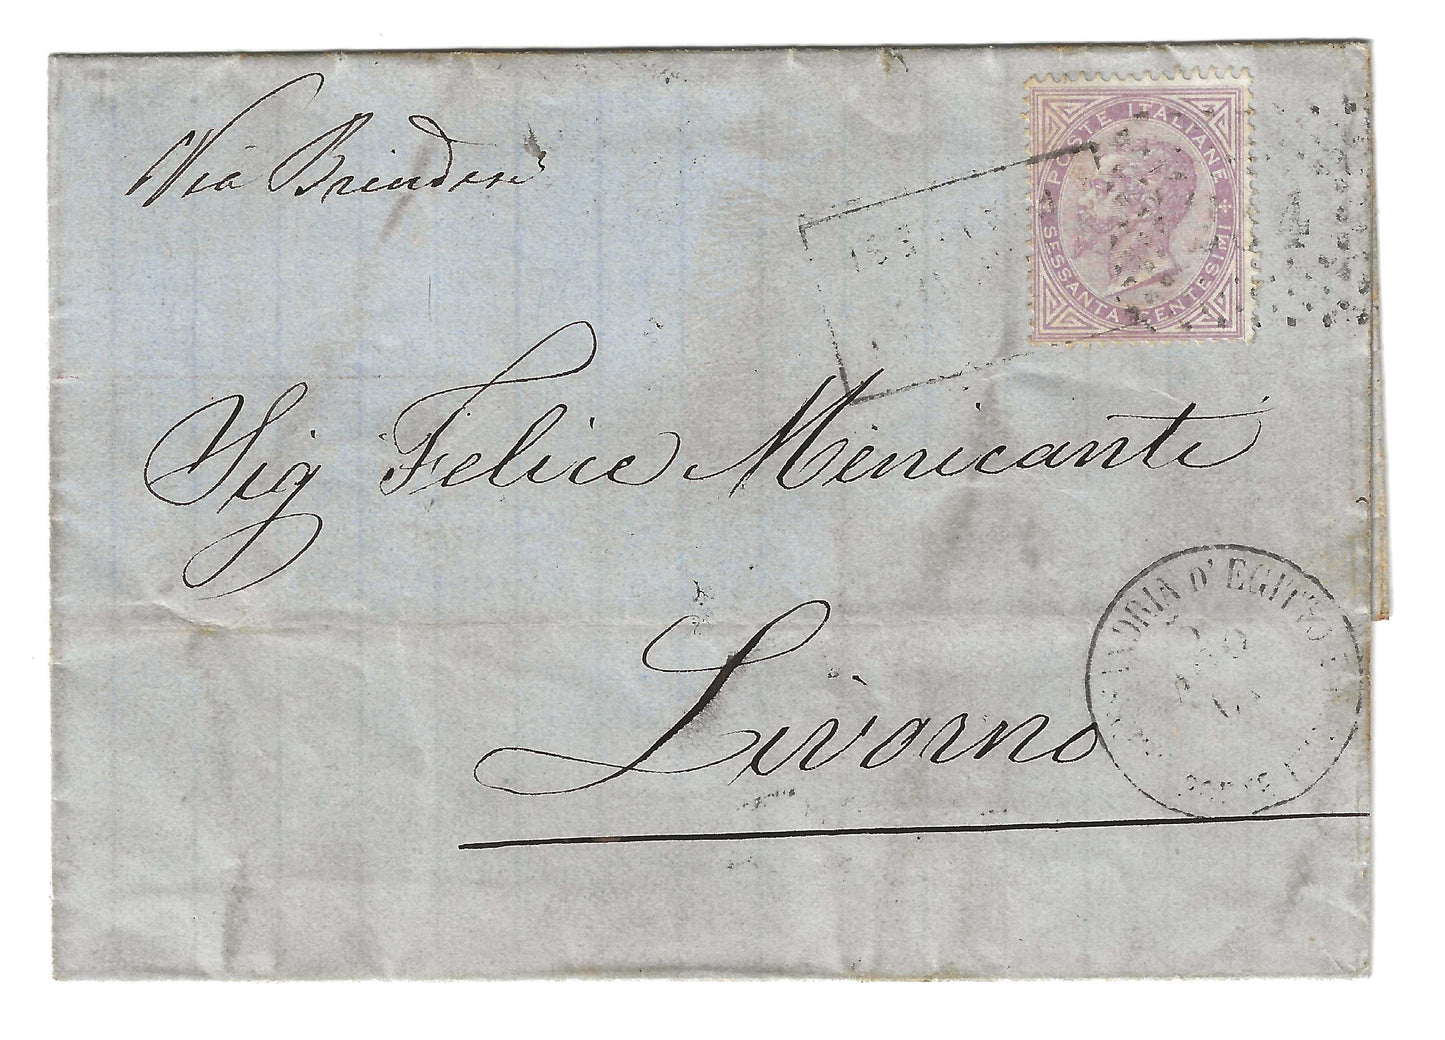 Via Brindisi
POSTE ITALIANE
SESSANTA CENTESIMI
Sig Felice Menicanti
Livorno
D'EGITTO